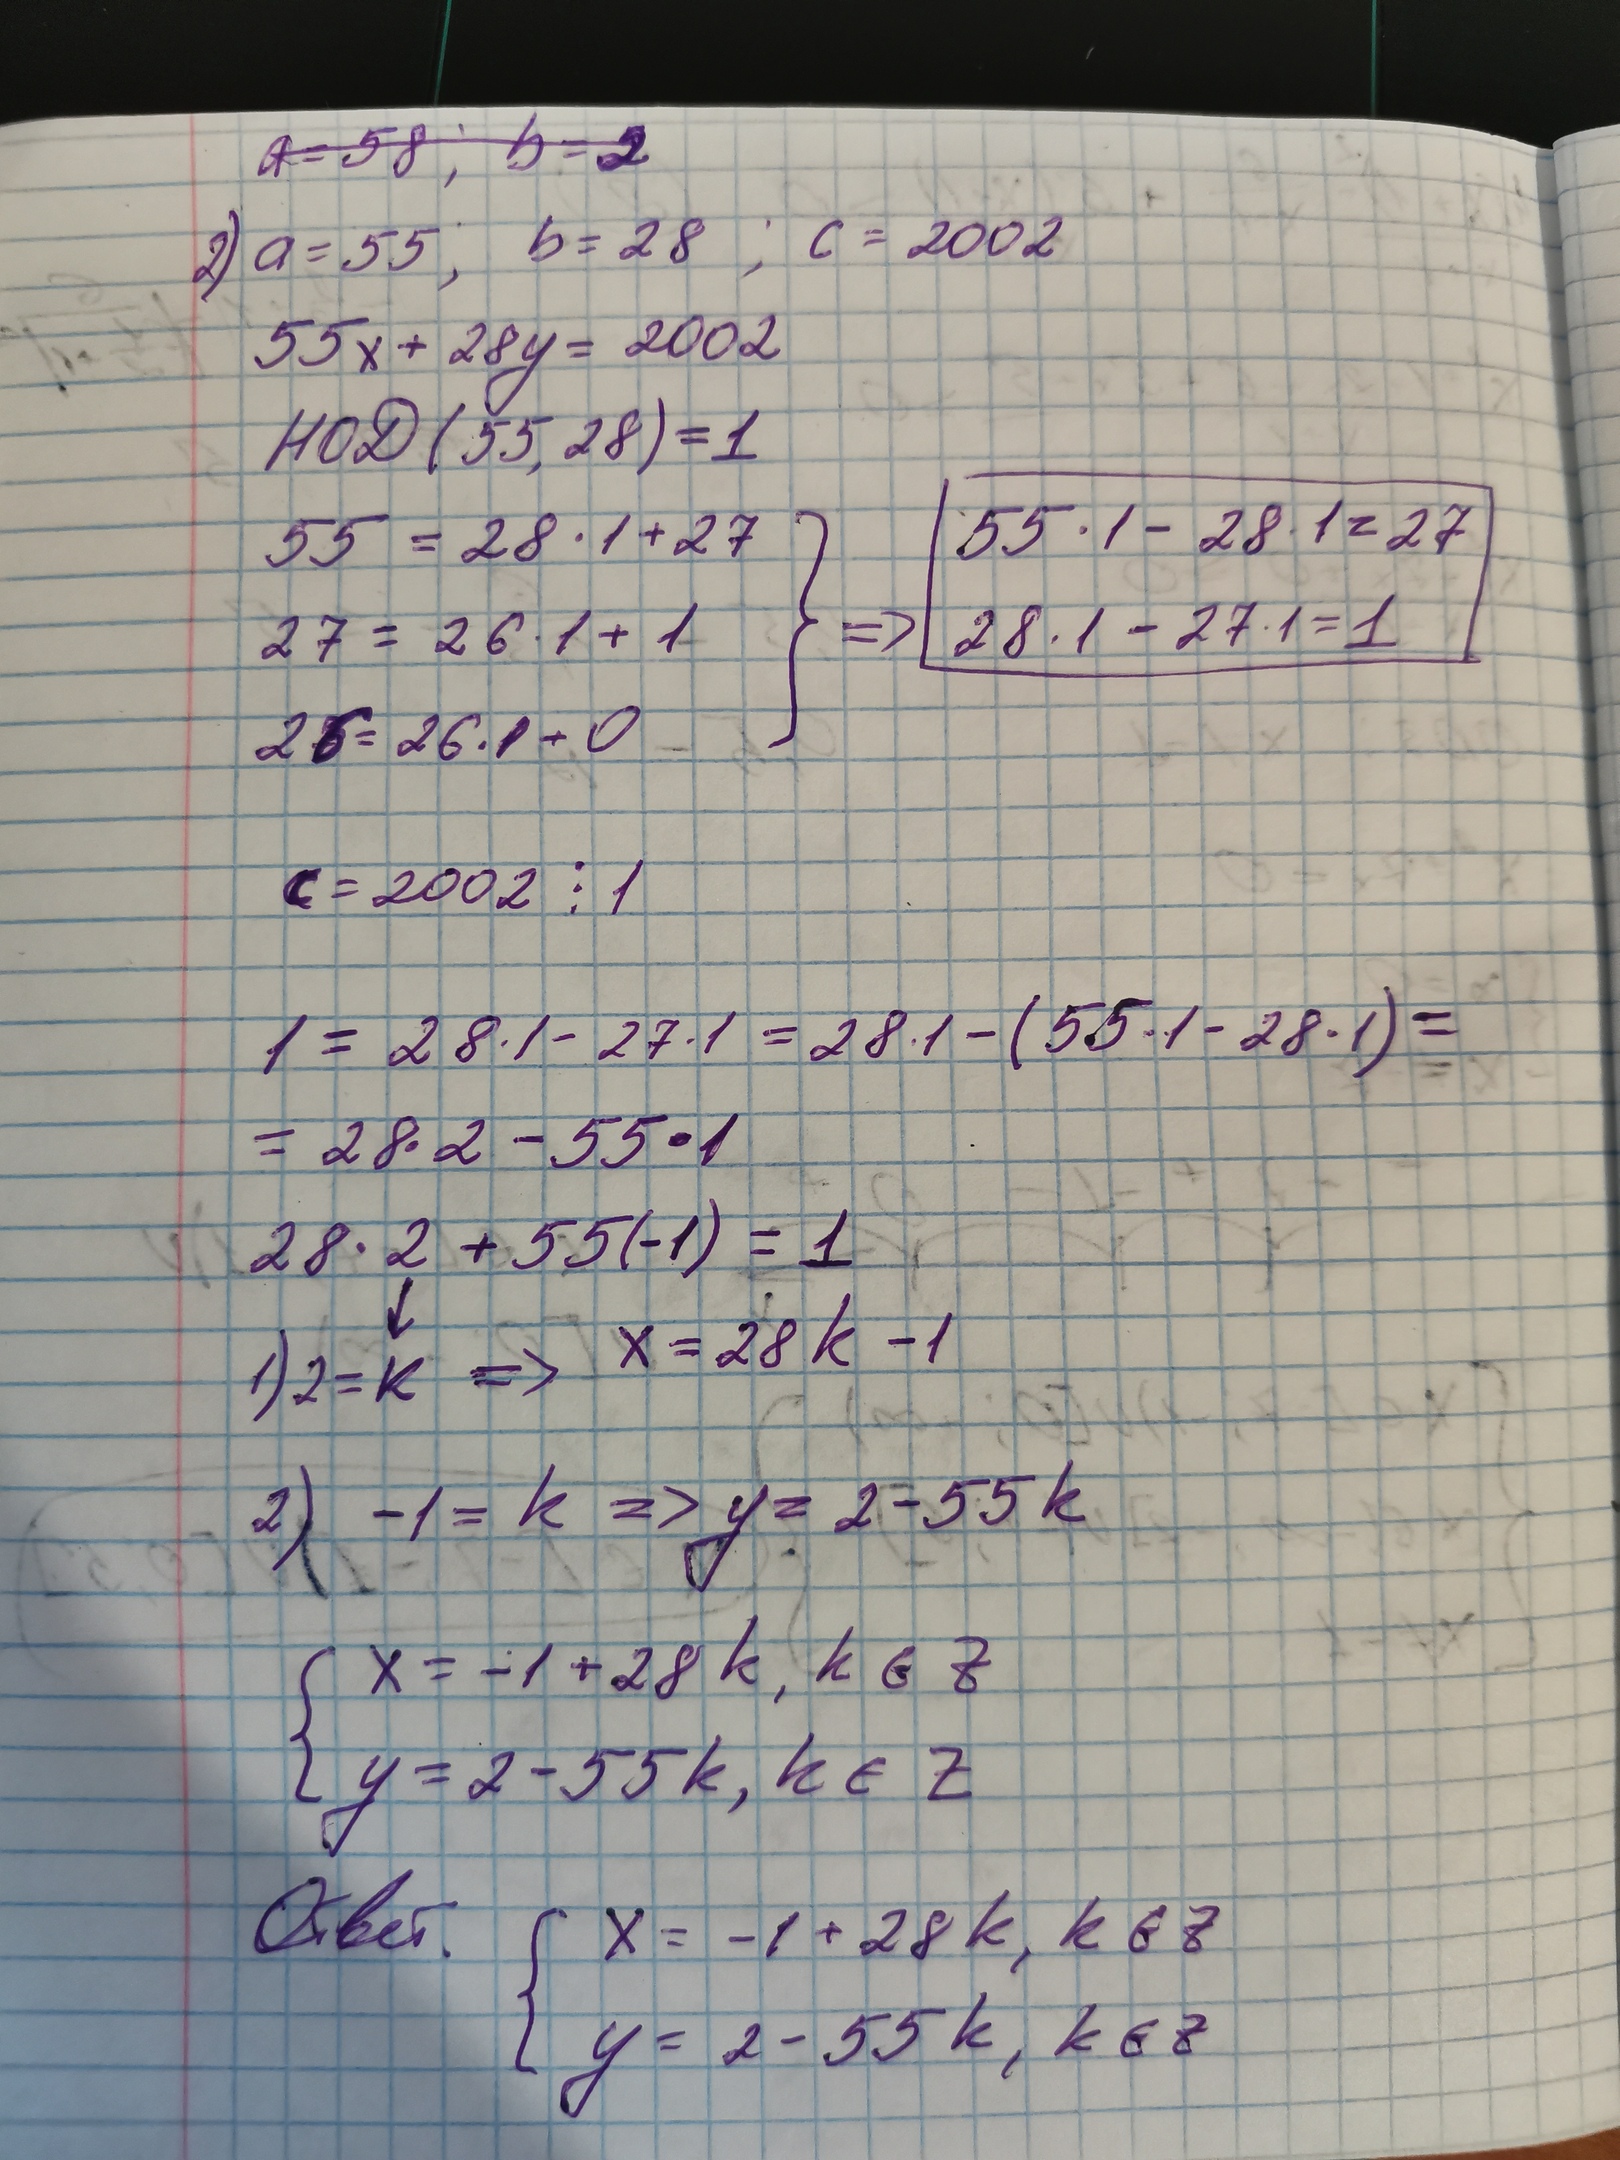 a = 58 ; b = 2
2) a = 55 ; b = 28 ; c = 2002
55x + 28y = 2002
НОД (55, 28) = 1
55 = 28 · 1 + 27
27 = 26 · 1 + 1
26 = 26 · 1 + 0
=>
55 · 1 - 28 · 1 = 27
28 · 1 - 27 · 1 = 1
c = 2002 ⋮ 1
1 = 28 · 1 - 27 · 1 = 28 · 1 - (55 · 1 - 28 · 1) =
= 28 · 2 - 55 · 1
28 · 2 + 55(-1) = 1
↓
1) 2 = k => x = 28k - 1
2) -1 = k => y = 2 - 55k
{ x = -1 + 28k, k ∈ Z
y = 2 - 55k, k ∈ Z
Ответ. { x = -1 + 28k, k ∈ Z
y = 2 - 55k, k ∈ Z